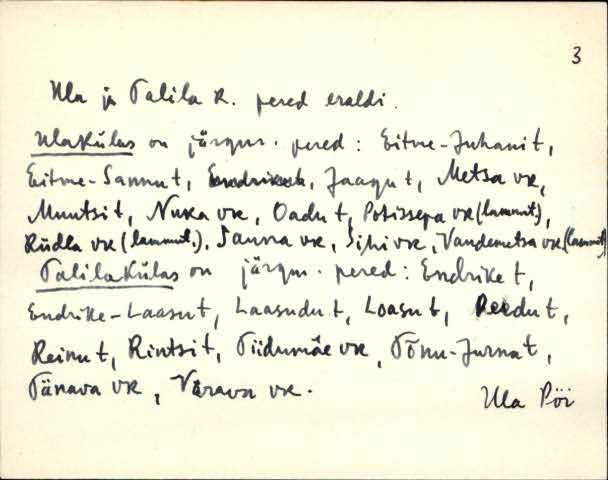 3
Ula ja Talila k. pered eraldi.
Ulakülas on järgm. pered: Eitme-Juhanit,
Eitme-Sannut, Jaagut, Metsa vk,
Muntsit, Nuka vk, Oadut, Potissepa vk (lammut.),
Rüdla vk (lammut.), Sauna vk, Sihi vk, Vandemetsa vk (lammut)
Talilakülas on järgm. pered: Endriket,
Endrike-Laasut, Laasudut, Loasut, Peedut,
Reinut, Rintsit, Tiidumäe vk, Tõnu-Jurnat,
Tänava vk, Värava vk.
Ula Pöi